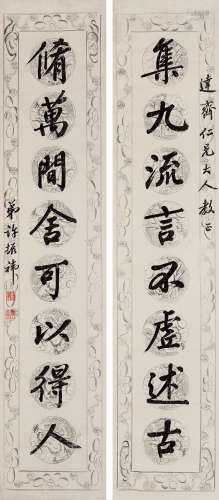 達齋仁兄大人教正
集九流言不虛述古
脩萬間舍可以得人
弟許振禕